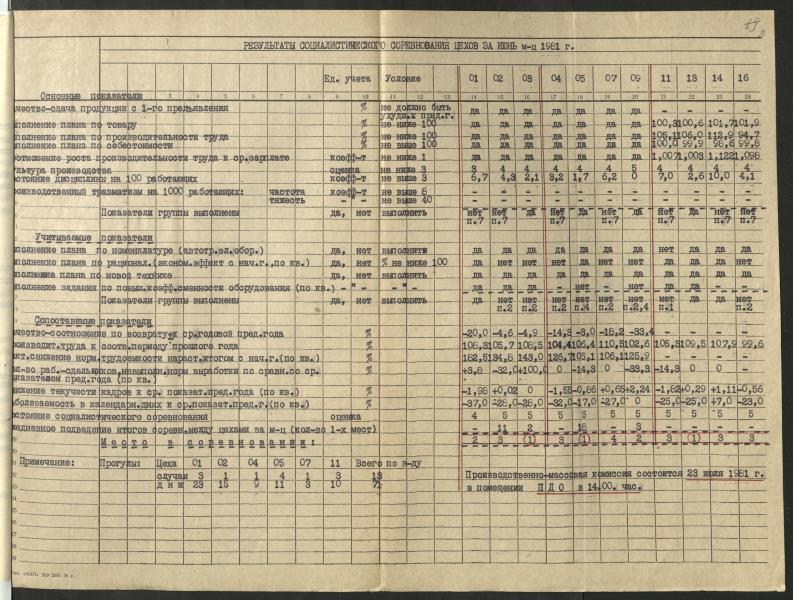 19
РЕЗУЛЬТАТЫ СОЦИАЛИСТИЧЕСКОГО СОРЕВНОВАНИЯ ЦЕХОВ ЗА ИЮНЬ м-ц 1981 г.
Ед. учета Условие 01 02 03 04 05 07 09 11 13 14 16
Основные показатели
чество-сдача продукции с 1-го предъявления % не должно быть ухудш.к пред.г. да да да да да да да - - - -
полнение плана по товару % не ниже 100 да да да да да да да 100,3 100,6 101,7 101,9
полнение плана по производительности труда % не ниже 100 да да да да да да да 105,1 106,0 112,9 94,7
полнение плана по себестоимости % не выше 100 да да да да да да да 100,0 99,9 98,6 99,8
отношение роста производительности труда к ср.зарплате коефф-т не ниже 1 да да да да да да да 1,007 1,003 1,122 1,098
льтура производства оценка не ниже 3 3 4 4 4 4 4 5 4 4 4 4
стояние дисциплины на 100 работающих коефф-т не выше 3 6,7 4,3 2,1 3,2 1,7 6,2 0 7,0 2,6 10,0 4,1
оизводственный травматизм на 1000 работающих: частота коефф-т не выше 5 - - - - - - - - - - -
тяжесть - " - не выше 40 - - - - - - - - - - -
Показатели группы выполнены да, нет выполнить нет нет да нет да нет да нет да нет нет
п.7 п.7 п.7 п.7 п.7 п.7 п.7
Учитываемые показатели
полнение плана по номенклатуре (автотр.эл.обор.) да, нет выполнить да да да да да да да нет да да да
полнение плана по рационал.(эконом.эффект с нач.г.,по кв.) да, нет % не ниже 100 да нет нет нет да нет нет да да да нет
полнение плана по новой технике да, нет выполнить да да да да да да да да да да да
полнение задания по повыш.коефф.сменности оборудования (по кв.) - " - - " - да да да - нет - нет да да - -
Показатели группы выполнены да, нет выполнить да нет нет нет нет нет нет нет да да нет
п.2 п.2 п.2 п.4 п.2 п.2,4 п.1 п.2
Сопоставимые показатели
чество-соотношение по возврату к ср.годовой пред.года % -20,0 -4,6 -4,9 -14,3 -3,0 -18,2 -33,4
роизводит.труда к соотв.периоду прошлого года % 108,3 105,7 108,5 104,4 106,4 110,5 102,6 105,3 109,5 107,9 99,6
кт.снижение норм.трудоемкости нараст.итогом с нач.г.(по кв.) % 182,5 134,8 143,0 126,7 105,1 106,1 125,9
л-во раб.-сдельщиков,невыполн.норм выработки по сравн.со ср. % +3,8 -32,0 +100,0 0 -14,3 0 -33,3 -14,3 0 - -
оказателем пред.года (по кв.)
ижение текучести кадров к ср. показат.пред.года (по кв.) % -1,98 +0,02 0 -1,55 -0,86 +0,65 +2,24 -1,82 +0,29 +1,11 -0,56
аболеваемость в календарн.днях к ср.показат.пред.г.(по кв.) % -37,0 -28,0 -28,0 -32,0 -17,0 -27,0 0 -25,0 -25,0 +7,0 -23,0
стояние социалистического соревнования оценка 4 5 5 5 5 5 5 5 5 5 5
жедневное подведение итогов соревн.между цехами за м-ц (кол-во 1-х мест) - 11 2 - 18 - 3 - - - -
Место в соревновании: 2 3 1 3 1 4 2 3 1 3 3
Примечание: Прогулы: Цеха 01 02 04 05 07 11 Всего по з-ду
случаи 3 1 1 4 1 3 13
дни 23 15 9 11 3 10 71
Производственно-массовая комиссия состоится 23 июля 1981 г.
в помещении П Д О в 14.00. час.